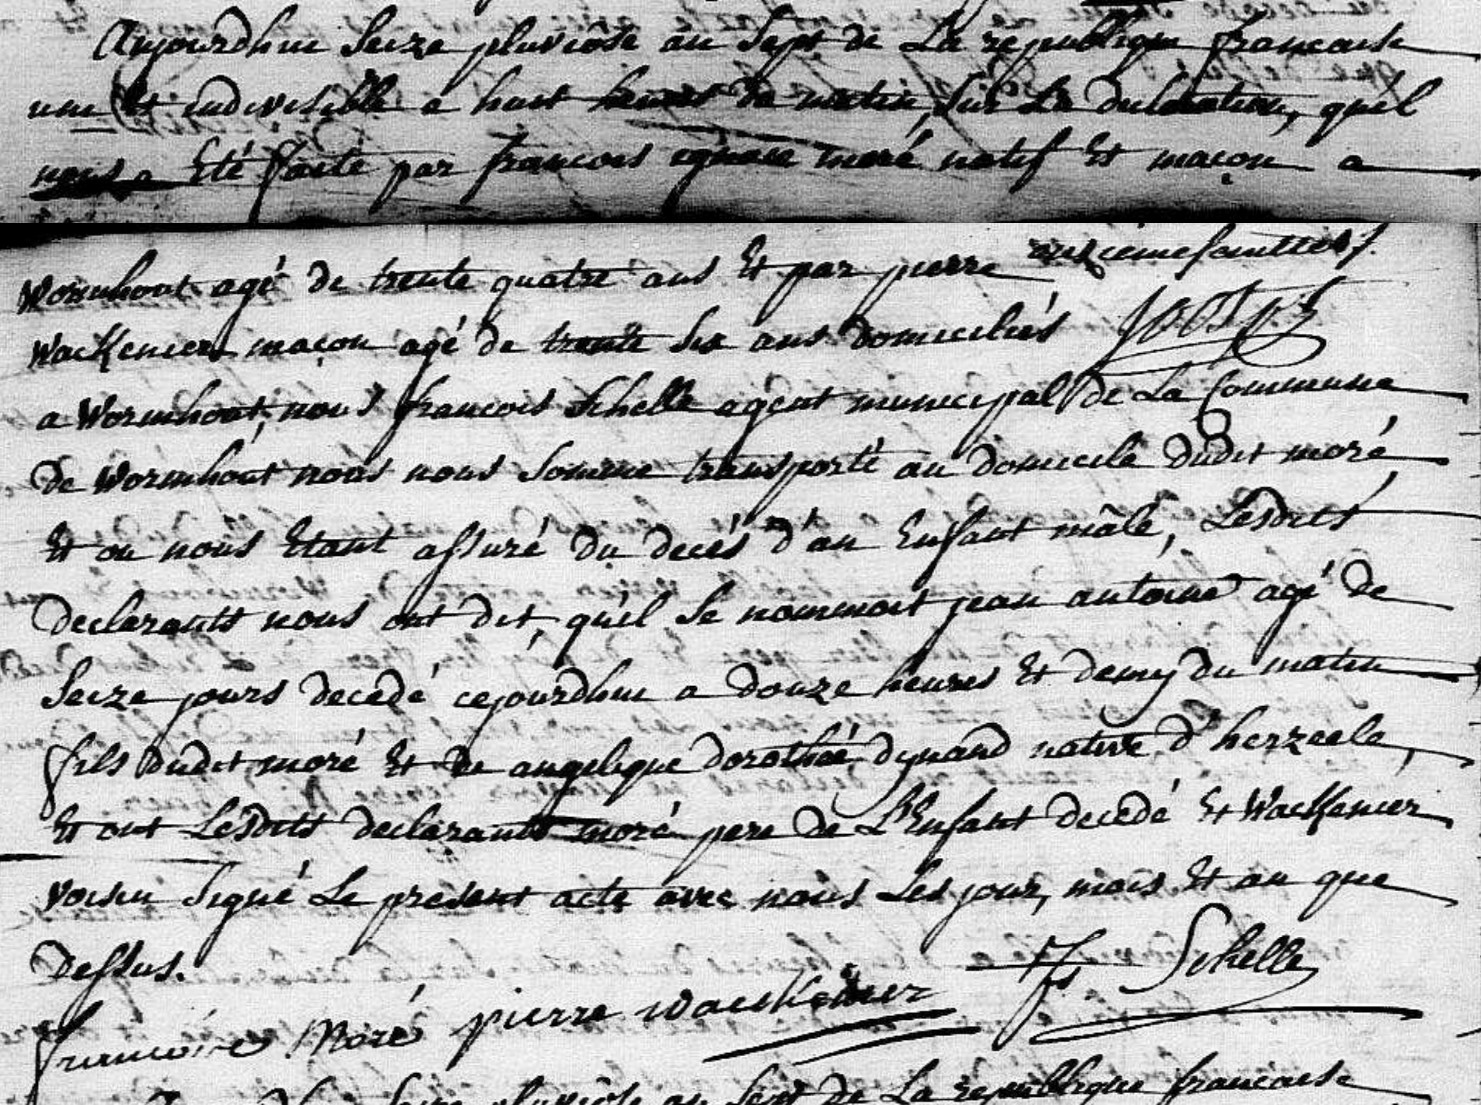 Aujourdhui Seize pluviôse an Sept de La republique francaise
une Et indivisible a huit heures du matin, Sur La declaration, quel
nous a Eté faite par francois ignace moré natif Et maçon a
Wormhout agé de trente quatre ans Et par pierre onzieme feuillet
Wackenier maçon agé de trente Six ans domiciliés
a Wormhout, nous francois Schelle agent municipal de La Commune
de Wormhout nous nous Somme transporté au domicile dudit moré,
Et ou nous Etant assuré du decés d'un Enfant mâle, Lesdits
declarants nous ont dit, qu'il Se nommoit jean antoine agé de
Seize jours decedé cejourdhui a douze heures Et demy du matin
fils dudit moré Et de angelique dorothée dynand native d'herzeele,
Et ont Lesdits declarants moré pere de L'Enfant decedé Et Wackenier
voisin Signé Le present acte avec nous Les jour, mois Et an que
dessus.
francois Moré pierre wackenier fs. Schelle
Seize pluviôse an Sept de La republique francaise